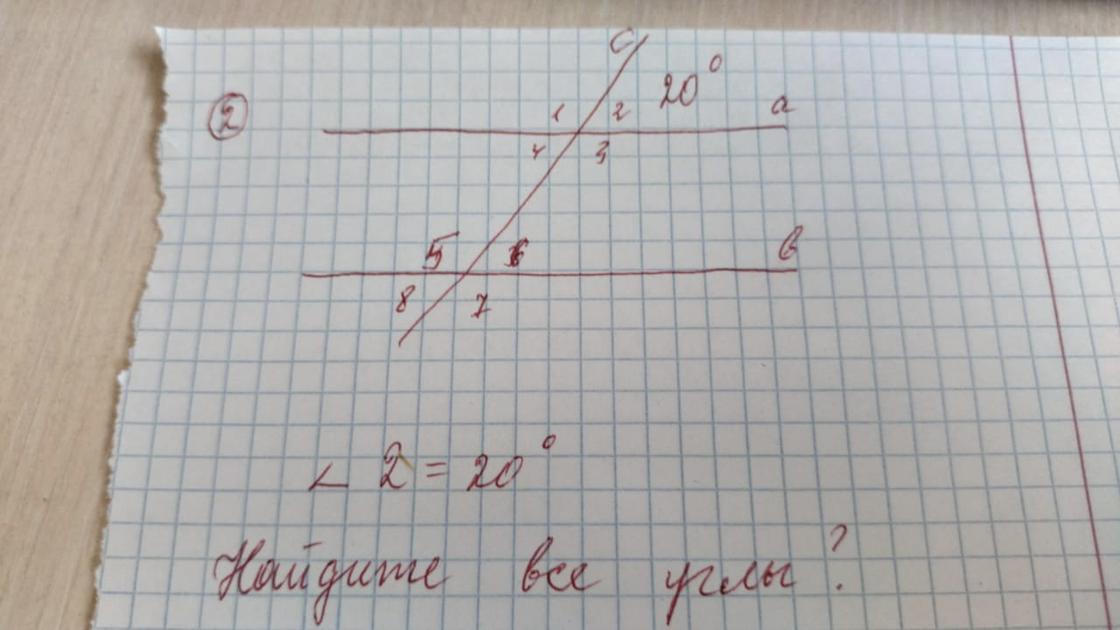 c
② 1 2 20° a
4 3
5 6 b
8 7
∠ 2 = 20°
Найдите все углы?